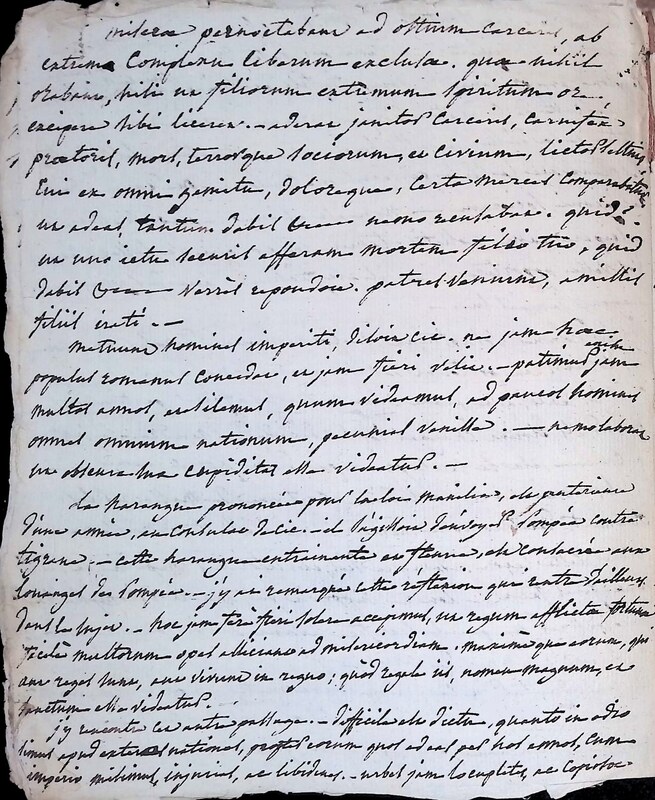 miserae pernoctabant ad ostium carceris, ab
extremo complexu liberum exclusae. quae nihil
orabant, nisi ut filiorum extremum spiritum ore
excipere sibi liceret. – aderat janitor carceris, carnifex
praetoris, mors, terrorque sociorum, et civium, lictor Sestius,
cui ex omni gemitu, doloreque, certa merces comparabatur
ut adeas, tantum dabis nemo recusabat. quid?
ut uno ictu securis afferam mortem filio tuo, quid
dabis Verrès répondoit. patres Vanum, amittis
filiis irati. –
metuunt homines imperiti, disoit cic. ne jam haec
populus romanus concedat, et jam fieri velit. – patimur enim jam
multos annos, et silemus, quum videamus, ad paucos homines
omnes omnium nationum, pecunias venisse. – nemo laborat
ut obscura sua cupiditas esse videatur. –
La harangue prononcée pour la loi manilia, est postérieure
d'une année, au consulat de cic. – il s'agissoit d'envoyer Pompée contre
tigrane. – cette harangue entrainante et fleurie, est consacrée aux
louanges de Pompée. – j'y ai remarqué cette réflexion qui rentre d'ailleurs
dans le sujet. – hoc jam ferè fieri solere accepimus, ut regum afflictae fortunae
facilè multorum opes alliciant ad misericordiam. maximèque eorum, qui
aut reges sunt, aut vivunt in regno; quòd regale iis, nomen magnum, et
sanctum esse videatur.
j'y rencontre cet autre passage. – difficile est dictu, quanto in odio
simus apud exteras nationes, propter eorum quos ad eas per hos annos, cum
imperio misimus, injurias, ac libidines. – urbes jam locupletes, ac copiosae